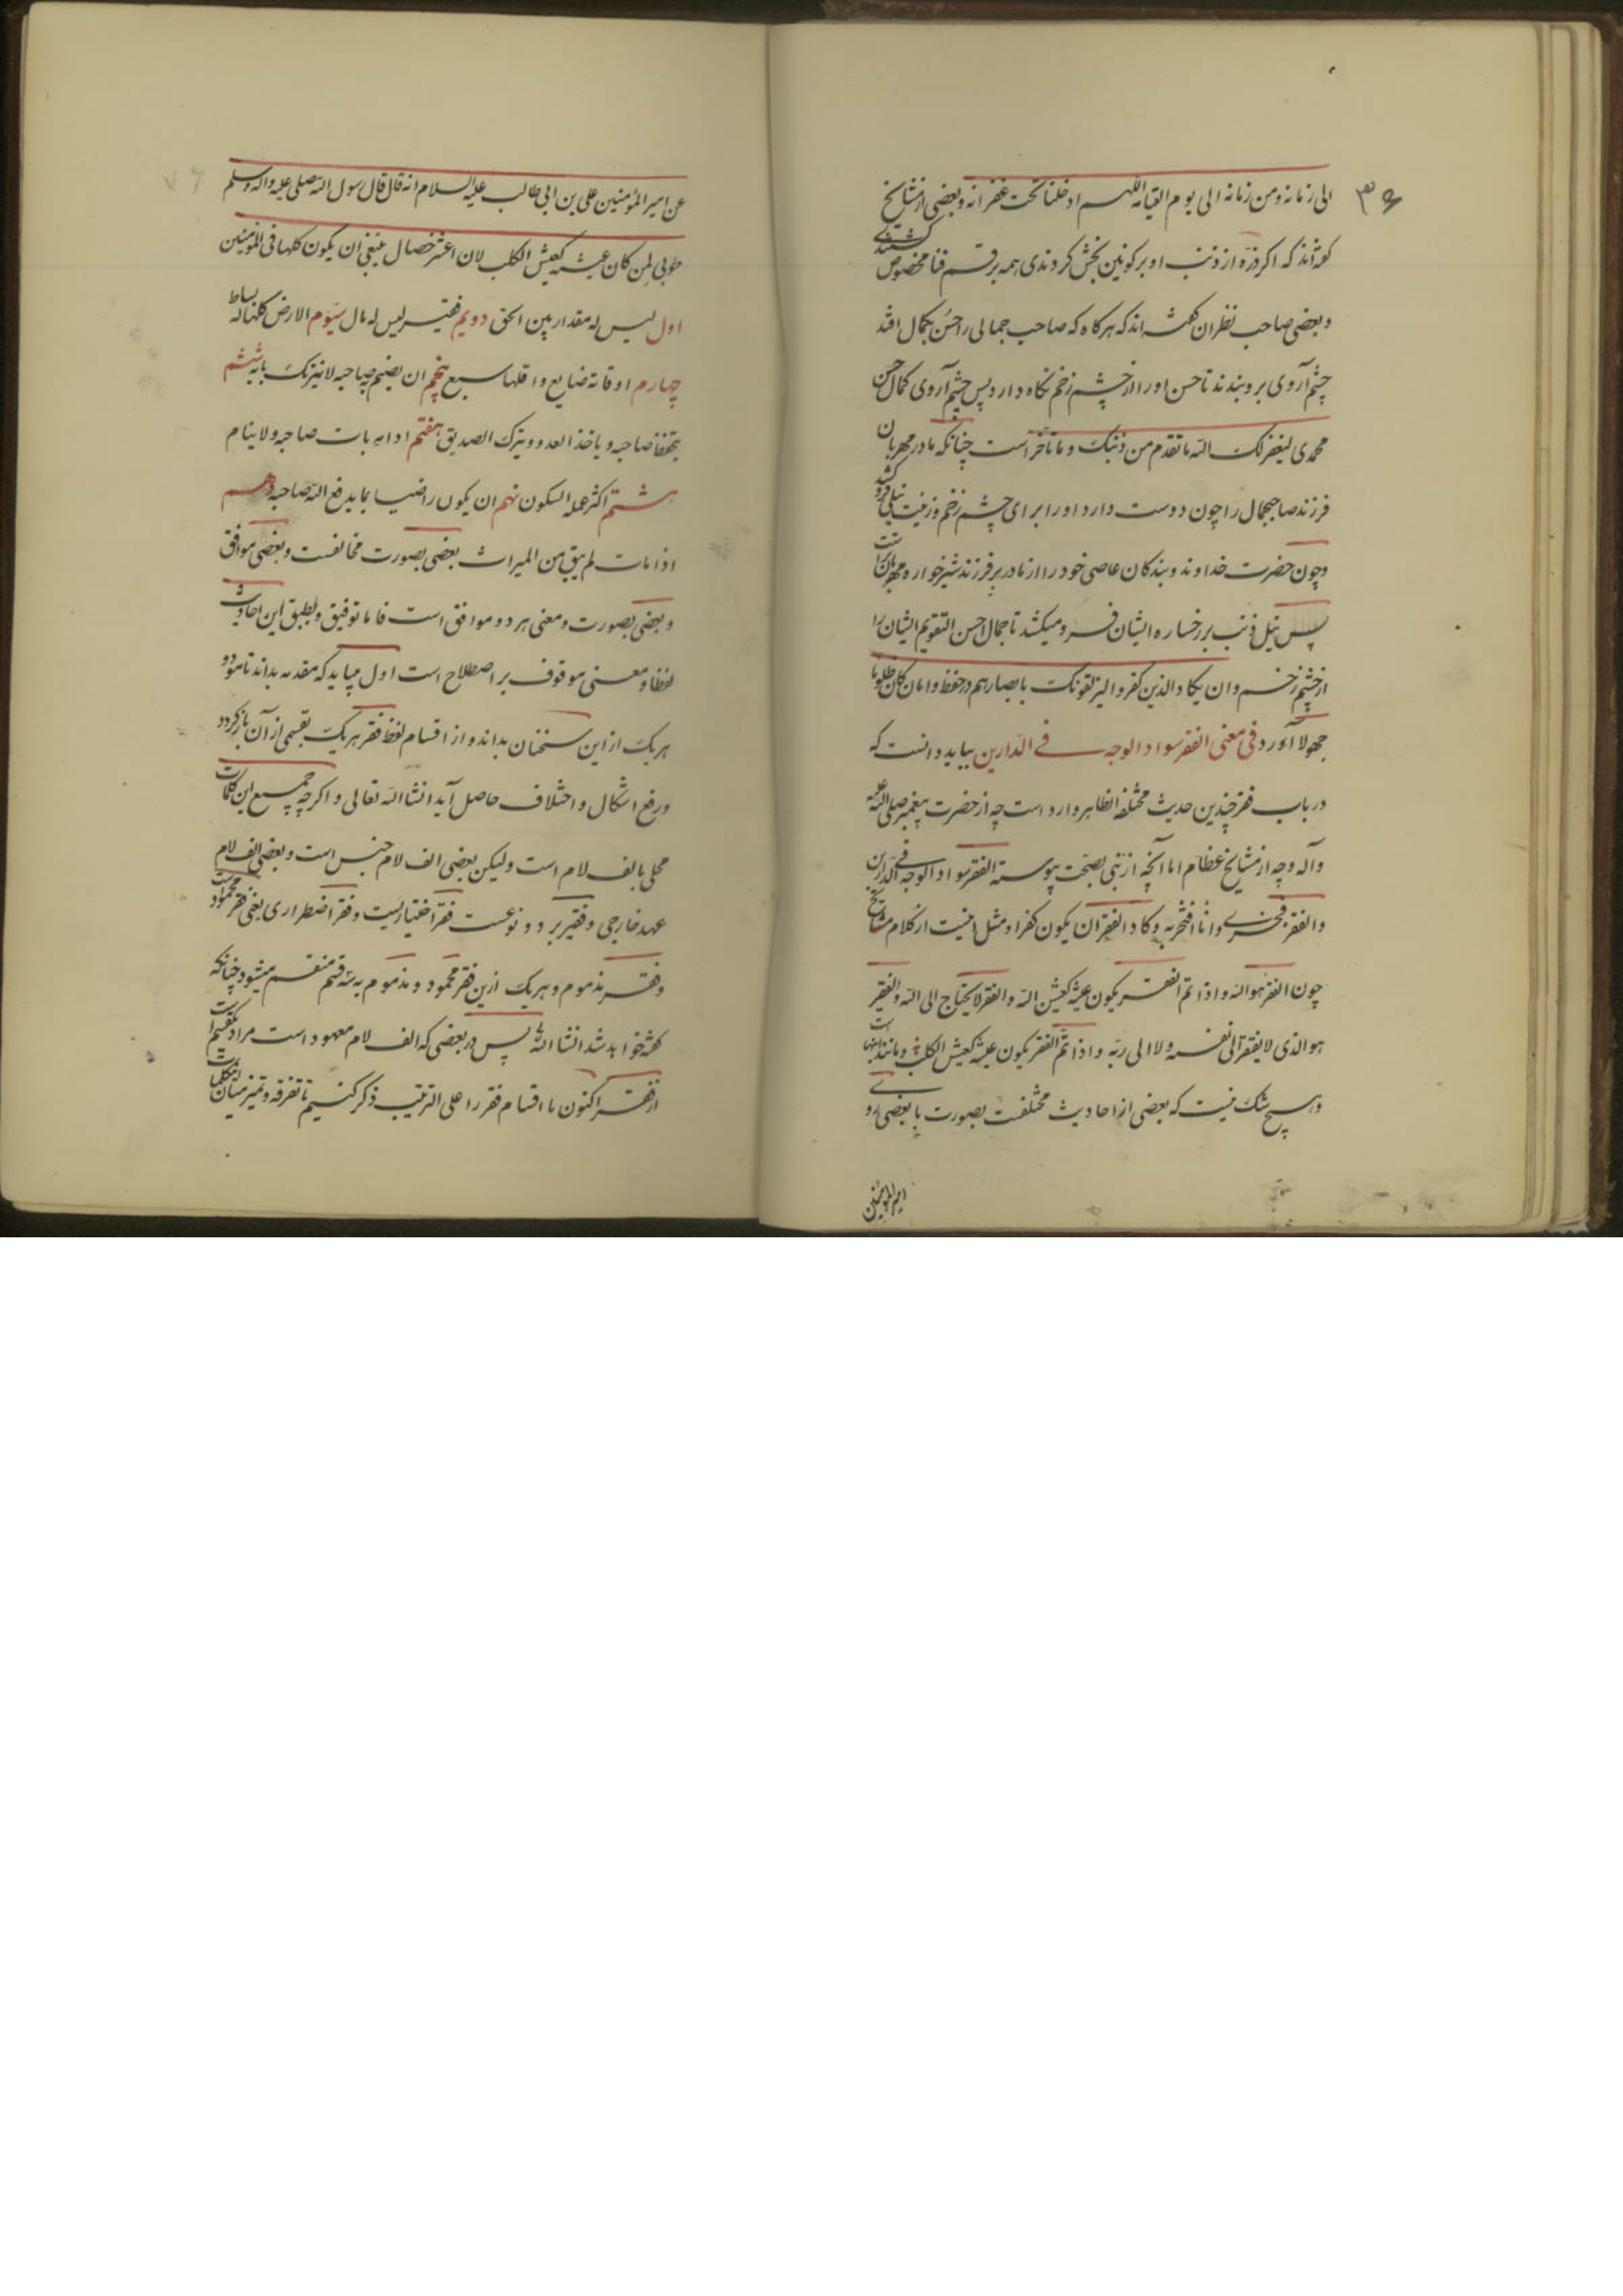 ۳۶
الی زمانه و من زمانه الی یوم القیامه اللهم ادخلنا تحت غفرانه و بعضی از مشایخ
گفته‌اند که اکر ذرّه از ذنب او بر کونین بخش کردندی همه برقم فنا مخصوص گشتندی
و بعضی صاحب نظران گفته‌اند که هرکاه که صاحب جمالی را حسن بکمال افتد
چشم آروی برو بندند تا حسن او را از چشم زخم نکاه دارد پس چشم آروی کمال حسن
محمدی لیغفر لک الله ما تقدم من ذنبک و ما تأخر است چنانکه مادر مهربان
فرزند صاحبجمال را چون دوست دارد او را برای چشم زخم و زینت نیلی فرو کشد
و چون حضرت خداوند و بندکان عاصی خود را از مادر بر فرزند شیرخواره مهربان‌تر است
پس نیل ذنب بر رخساره ایشان فرو میکشد تا جمال احسن التقویم ایشان را
از چشم زخم و ان یکاد الذین کفروا لیزلقونک بابصارهم در حفظ و امان کان ظلوما
جهولا آورد فی معنی الفقر سواد الوجه فی الدّارین بباید دانست که
در باب فقر چندین حدیث مختلفه الظاهر وارد است چه از حضرت پیغمبر صلی الله علیه
و آله و چه از مشایخ عظام اما آنچه از نبی بصحت پیوسته الفقر سواد الوجه فی الدّارین
و الفقر فخری و انا افتخر به و کاد الفقر ان یکون کفرا و مثل اینست از کلام مشایخ
چون الفقر هو الله و اذا تم الفقر یکون عیشه کعیش الله و الفقر لا یحتاج الی الله و الفقر
هو الذی لا یفتقر الی نفسه و لا الی ربّه و اذا تمّ الفقر یکون عیشه کعیش الکلب و مانند اینها است
و هیچ شک نیست که بعضی از احادیث مختلفست بصورت با بعضی
امیر المؤمنین
عن امیر المؤمنین علی بن ابی طالب علیه السلام انه قال قال رسول الله صلی علیه و اله و سلم
طوبی لمن کان عیشه کعیش الکلب لان عشر خصال ینبغی ان یکون کلها فی المؤمنین
اول لیس له مقدار بین الحق دویم فقیر لیس له مال سیّوم الارض کلها له بساط
چهارم اوقاته ضایع و اقلها سبع پنجم ان یضیم صاحبه لا یترک بابه ششم
یحفظ صاحبه و یاخذ العدو و یترک الصدیق هفتم اذا بات صاحبه و لا ینام
هشتم اکثر عمله السکون نهم ان یکون راضیا بما یدفع الله صاحبه دهم
اذا مات لم یبق من المیراث بعضی بصورت مخالفست و بعضی موافق
و بعضی بصورت و معنی هر دو موافق است فاما توفیق و تطبیق این احادیث
لفظا و معنی موقوف بر اصطلاح است اول میباید که مقدمه بداند تا
هر یک از این سخنان بداند و از اقسام لفظ فقر هر یک بقسمی از آن باز کردد
و رفع اشکال و اختلاف حاصل آید انشا الله تعالی و اکرچه جمیع این کلمات
محلی بالف لام است ولیکن بعضی الف لام جنس است و بعضی الف لام
عهد خارجی و فقر بر دو نوعست فقر اختیاریست و فقر اضطراری یعنی فقر محمود است
و فقر مذموم و هر یک ازین فقر محمود و مذموم به سه قسم منقسم میشود چنانکه
گفته خواهد شد انشا الله پس در بعضی که الف لام معهود است مراد یک قسم است
از فقر اکنون ما اقسام فقر را علی الترتیب ذکر کنیم تا تفرقه و تمیز میان این کلمات